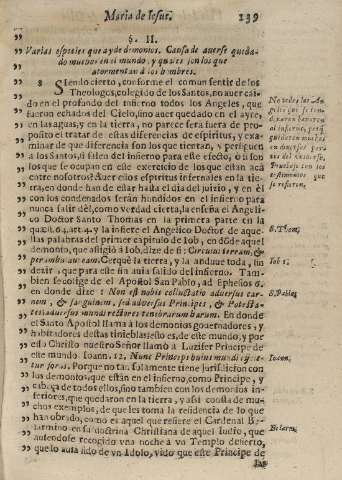 Maria de Iesus. 239
§. II.
Varias especies que ay de demonios. Causa de auerse queda-
do muchos en el mundo, y quales son los que
atormentan à los hombres.
8 SIendo cierto, conforme el comun sentir de los
Theologos, colegido de los Santos, no auer cai-
do en el profundo del infierno todos los Angeles, que
fueron echados del Cielo, sino auer quedado en el ayre,
en las aguas, y en la tierra, no parece será fuera de pro-
posito el tratar de estas diferencias de espiritus, y exa-
minar de que diferencia son los que tientan, y persiguen
à los Santos, si salen del infierno para este efecto, ò si son
los que se ocupan en este exercicio de los que estàn acà
entre nosotros? Auer estos espiritus infernales en la tie-
rra, en donde han de estar hasta el dia del juizio, y en èl
con los condenados serán hundidos en el infierno para
nunca salir dèl, como verdad cierta, la enseña el Angeli-
co Doctor Santo Thomas en la primera parte en la
quæst. 64. art. 4. y la infiere el Angelico Doctor de aque-
llas palabras del primer capitulo de Iob, en dõde aquel
demonio, que afligiò à Iob, dize de sì: Circuiui terram, &
perambulaui eam. Cerquè la tierra, y la anduue toda, sin
dezir, que para este fin auia salido del infierno. Tam-
bien se colige de el Apostol San Pablo, ad Ephesios 6.
en donde dize: Non est nobis colluctatio aduersus car-
nem, & sanguinem, sed aduersus Principes, & Potesta-
tes, aduersus mundi rectores tenebrarum harum. En donde
el Santo Apostol llama à los demonios gouernadores, y
habitadores destas tinieblas: esto es, de este mundo, y por
esso Christo nuestro Señor llamò à Luzifer Principe de
este mundo. Ioann. 12. Nunc Princeps huius mundi eijcie-
tur foras. Porque no tan solamente tiene jurisdicion con
los demonios, que están en el infierno, como Principe, y
cabeça de todos ellos, sino tambien con los demonios in-
feriores, que quedaron en la tierra, y assi consta de mu-
chos exemplos, de que les toma la residencia de lo que
han obrado, como es aquel que refiere el Cardenal Be-
larmino en su doctrina Christiana de aquel Iudio, que
auiendose recogido vna noche à vn Templo desierto,
que lo auia sido de vn Idolo, vido que este Principe de
No todos los An-
geles
al infierno,
S. Thom.
Iob 1.
S. Pablo.
Ioan.
Belarm.